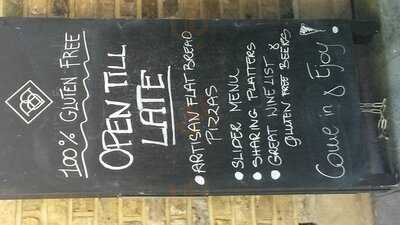 100% GLUTEN FREE
OPEN TILL
LATE
• ARTISAN FLAT BREAD
PIZZAS
• SLIDER MENU
• SHARING PLATTERS
• GREAT WINE LIST &
GLUTEN FREE BEERS
Come in & Enjoy!